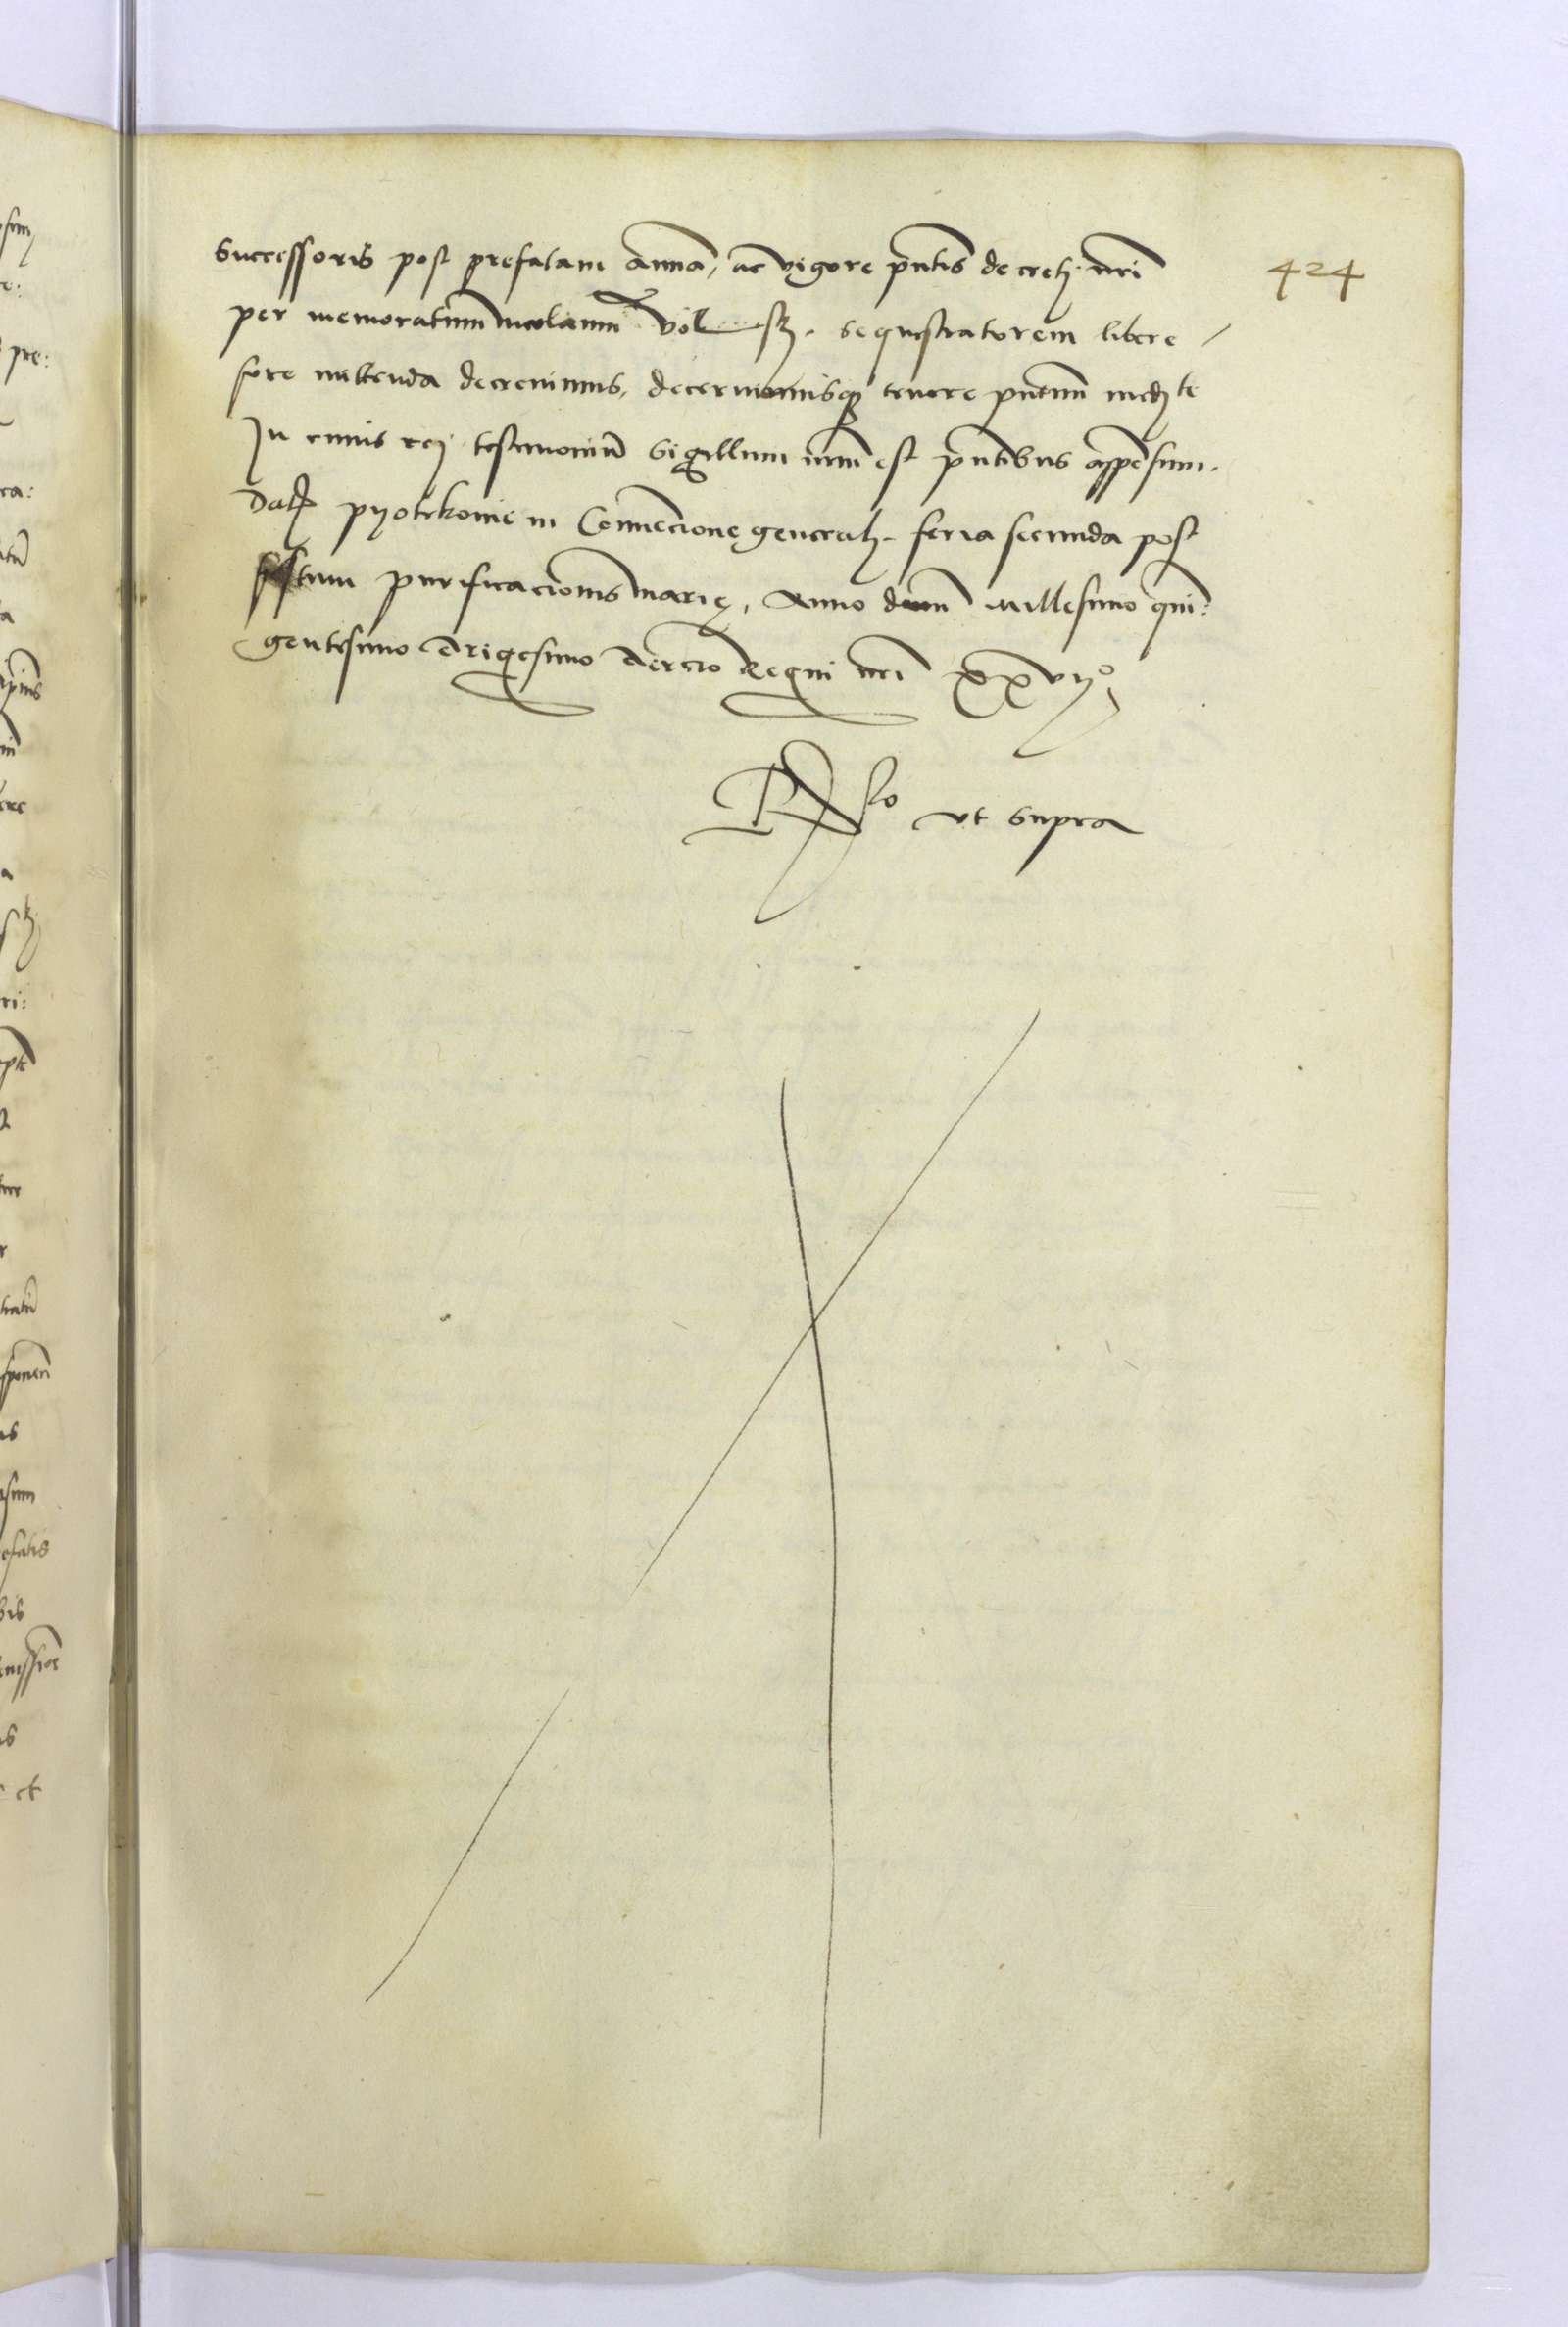 successoris post prefatam Annā, ac vigore pn̄tis decreti nr̄i
424
per memoratum Nicolaum Vol sky. sequestratorem libere
fore mittenda decrevimus, decernimusq; tenore pn̄tium med te
In cuius rei testimoniū sigillum nr̄m est pn̄tibus appensum.
Dat Pyotrkovie in Convēcione generali. feria secunda post
festum purificacionis Marie, Anno dom̄ Millesimo quin:
gentesimo Trigesimo Tercio Regni nr̄i XXVIIº
Rº ut supra